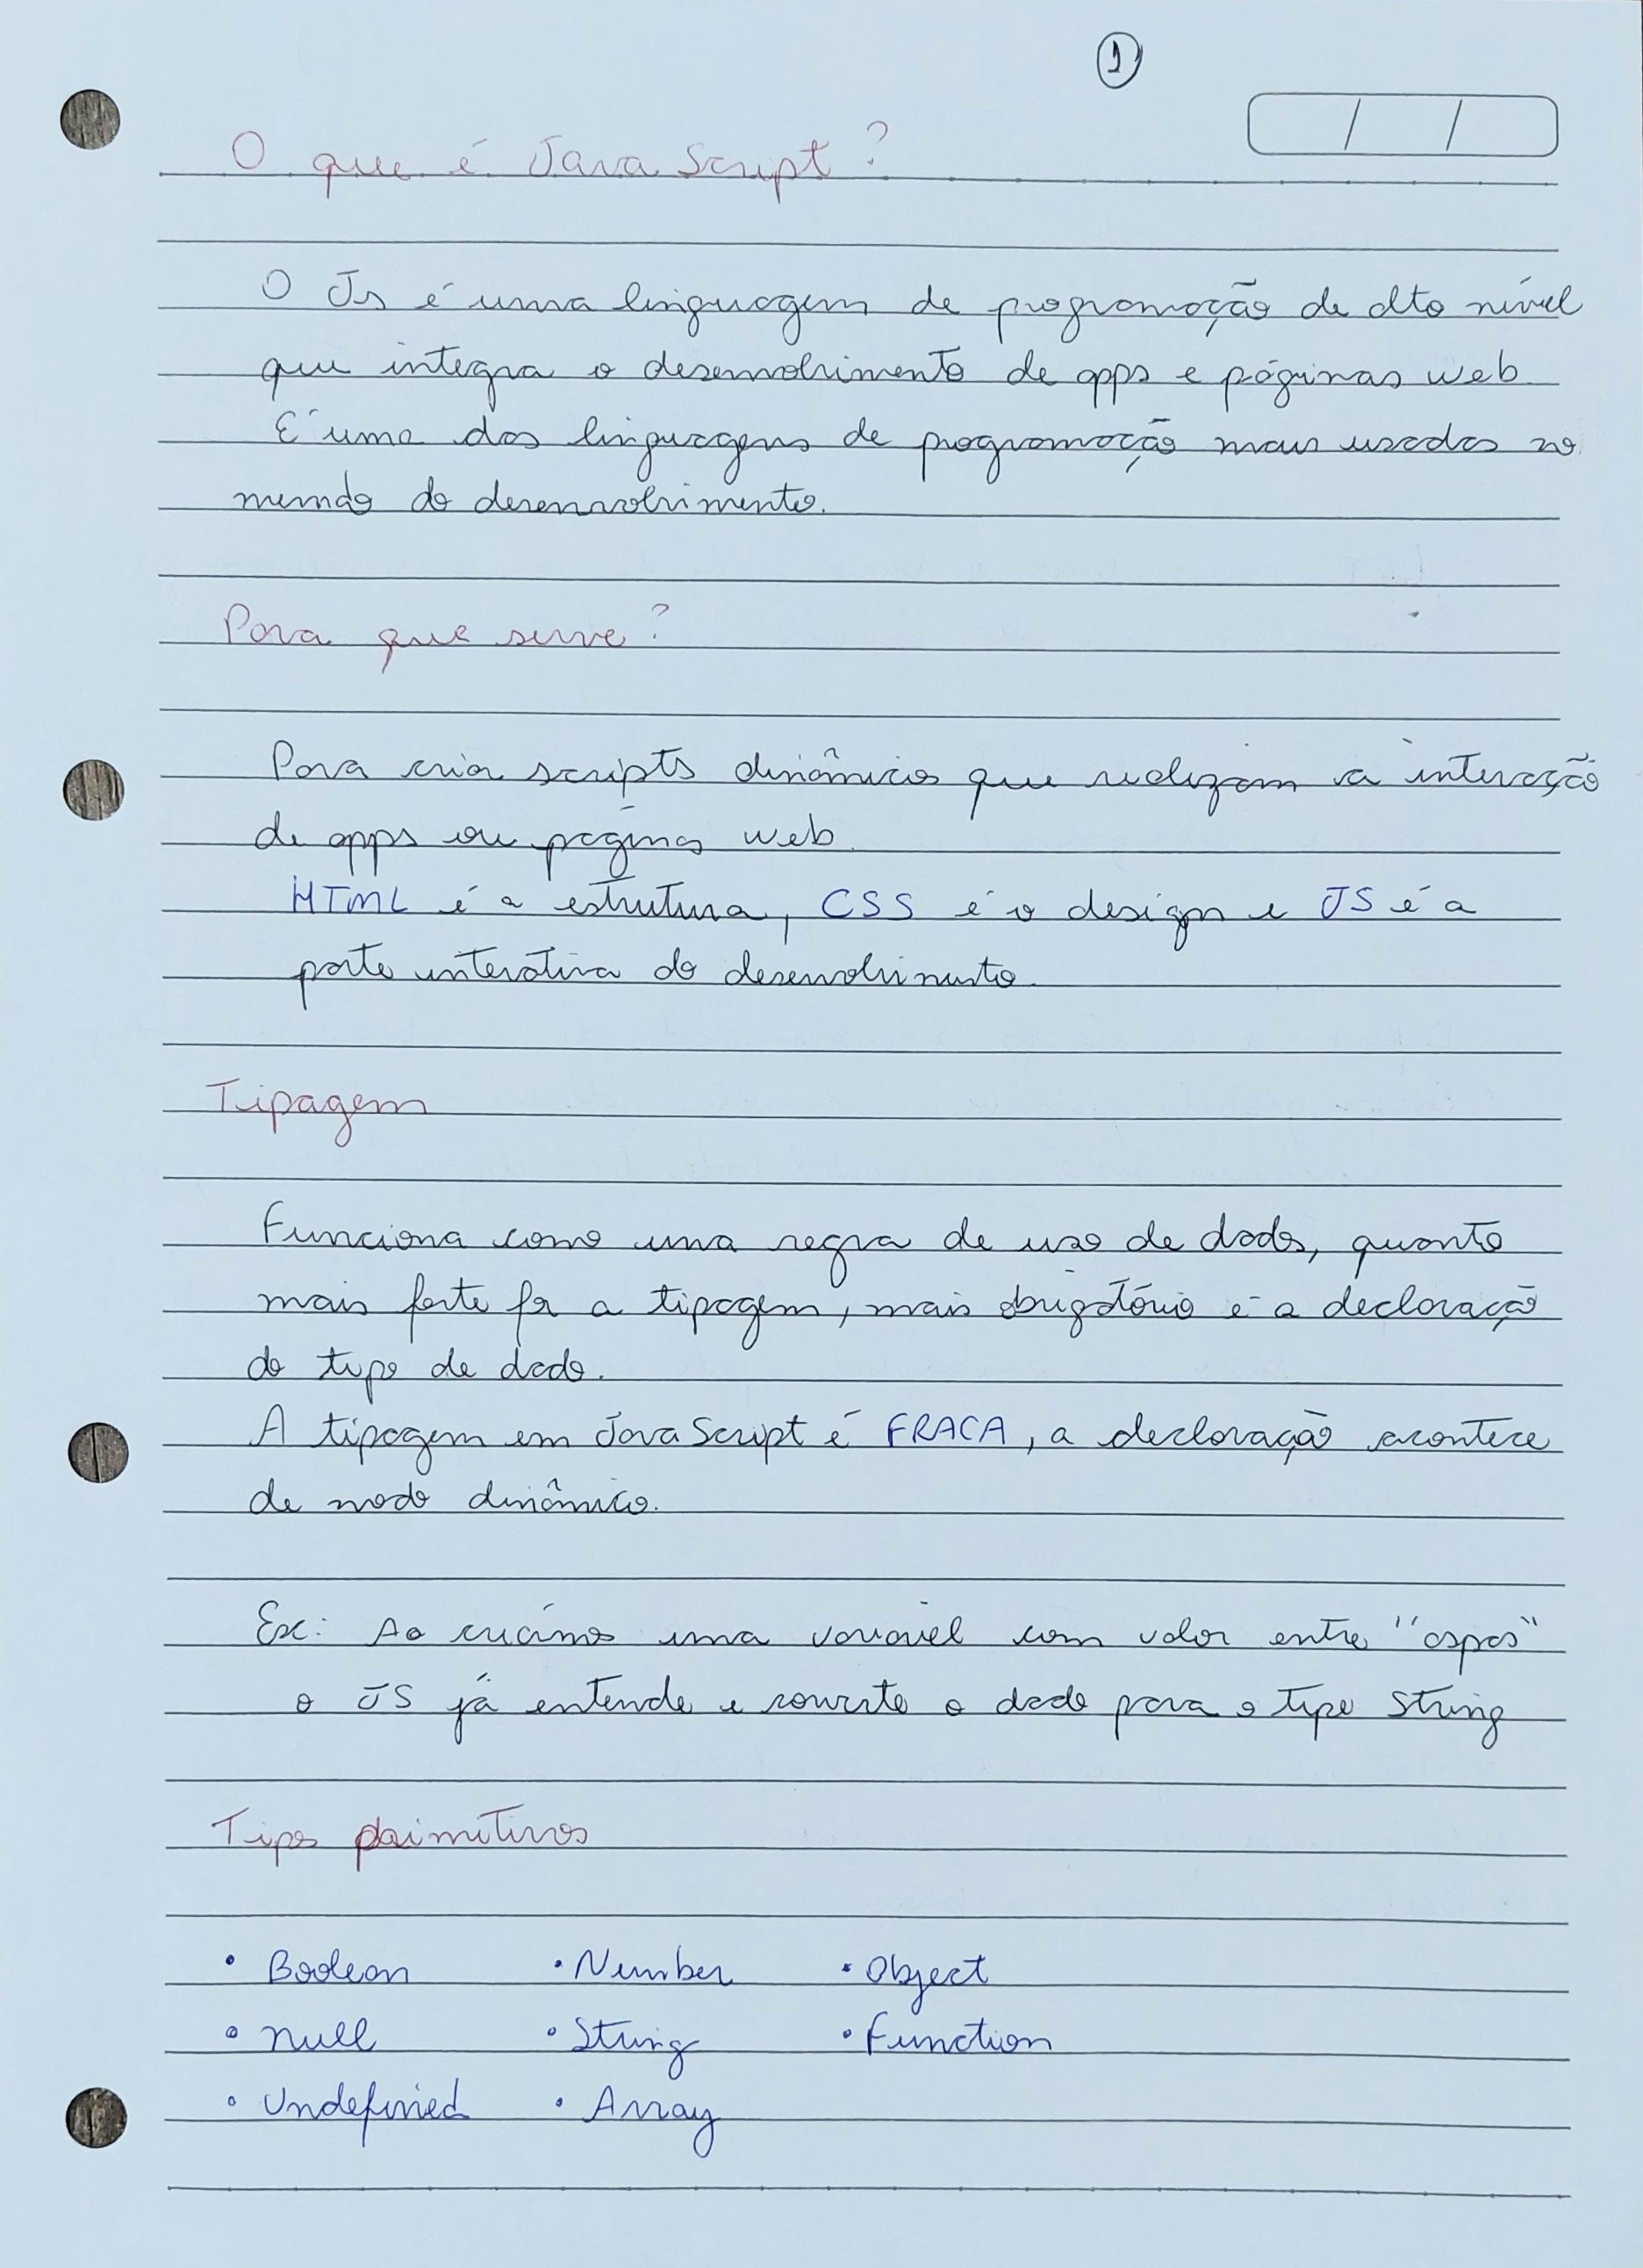 1
O que é JavaScript?
O Js é uma linguagem de programação de alto nível
que integra o desenvolvimento de apps e páginas web
É uma das linguagens de programação mais usadas no
mundo do desenvolvimento.
Para que serve?
Para criar scripts dinâmicos que realizam a interação
de apps ou páginas web.
HTML é a estrutura, CSS é o design e JS é a
parte interativa do desenvolvimento.
Tipagem
Funciona como uma regra de uso de dados, quanto
mais forte for a tipagem, mais obrigatório é a declaração
do tipo de dado.
A tipagem em JavaScript é FRACA, a declaração acontece
de modo dinâmico.
Ex: Ao criámos uma variável com valor entre "aspas"
o JS já entende e converte o dado para o tipo String
Tipos primitivos
• Boolean • Number • Object
• null • String • Function
• Undefined • Array